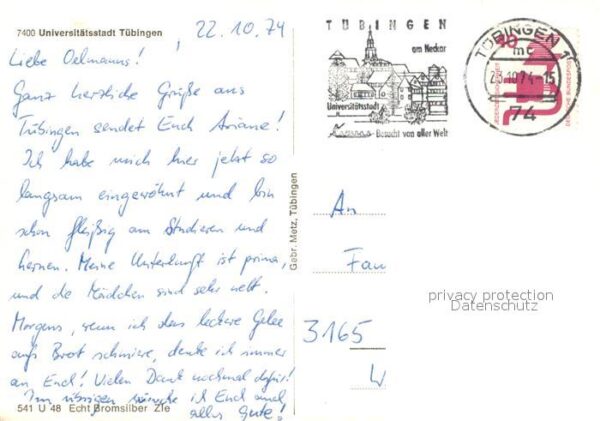 7400 Universitätsstadt Tübingen
22.10.74
Liebe Oelmanns!
Ganz herzliche Grüße aus
Tübingen sendet Euch Ariane!
Ich habe mich hier jetzt so
langsam eingewöhnt und bin
schon fleißig am Studieren und
Lernen. Meine Unterkunft ist prima,
und die Mädchen sind sehr nett.
Morgens, wenn ich das leckere Gelee
aufs Brot schmiere, denke ich immer
an Euch! Vielen Dank nochmal dafür!
Im übrigen wünsche ich Euch
alles Gute!
541 U 48 Echt Bromsilber Zie
Gebr. Metz, Tübingen
TÜBINGEN
am Neckar
Universitätsstadt
Besucht von aller Welt
TÜBINGEN 1
mc
10.74-15
74
40
JEDERZEIT SICHERHEIT
DEUTSCHE BUNDESPOST
An
Fau
3165
W
privacy protection
Datenschutz